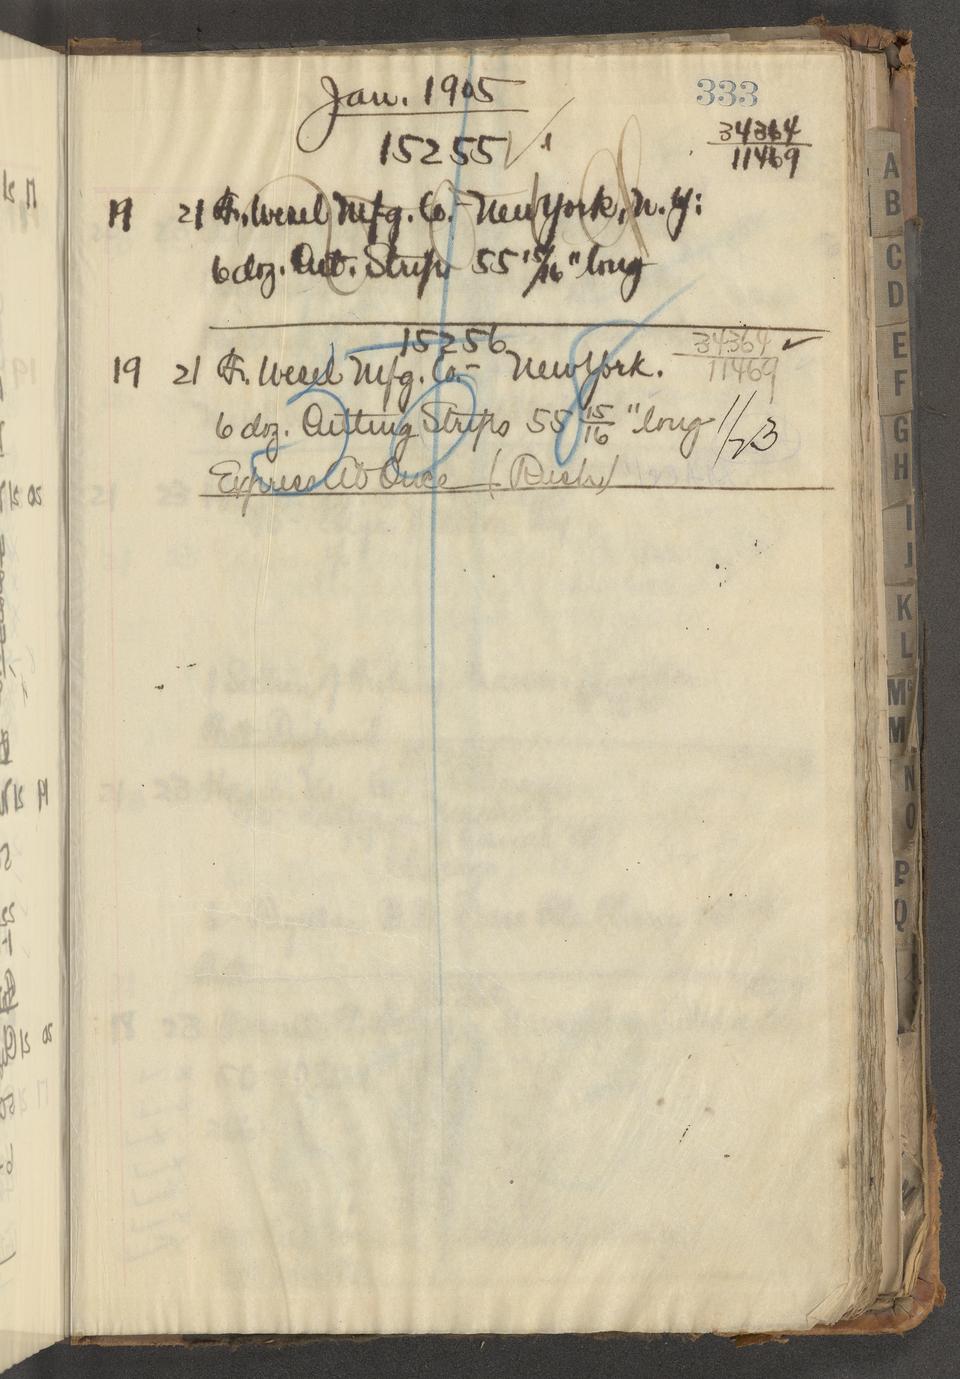 Jan. 1905
333
34364
11469
15255 ✓
19 21 F. Wesel Mfg. Co. - New York, N. Y:
6 doz. Cut. Strips 55 15/16" long
15256
34364 ✓
11469
19 21 F. Wesel Mfg. Co. - New York.
6 doz. Cutting Strips 55 15/16" long 1/23
Express At Once (Rush)
A
B
C
D
E
F
G
H
I
J
K
L
M
M
N
O
P
Q